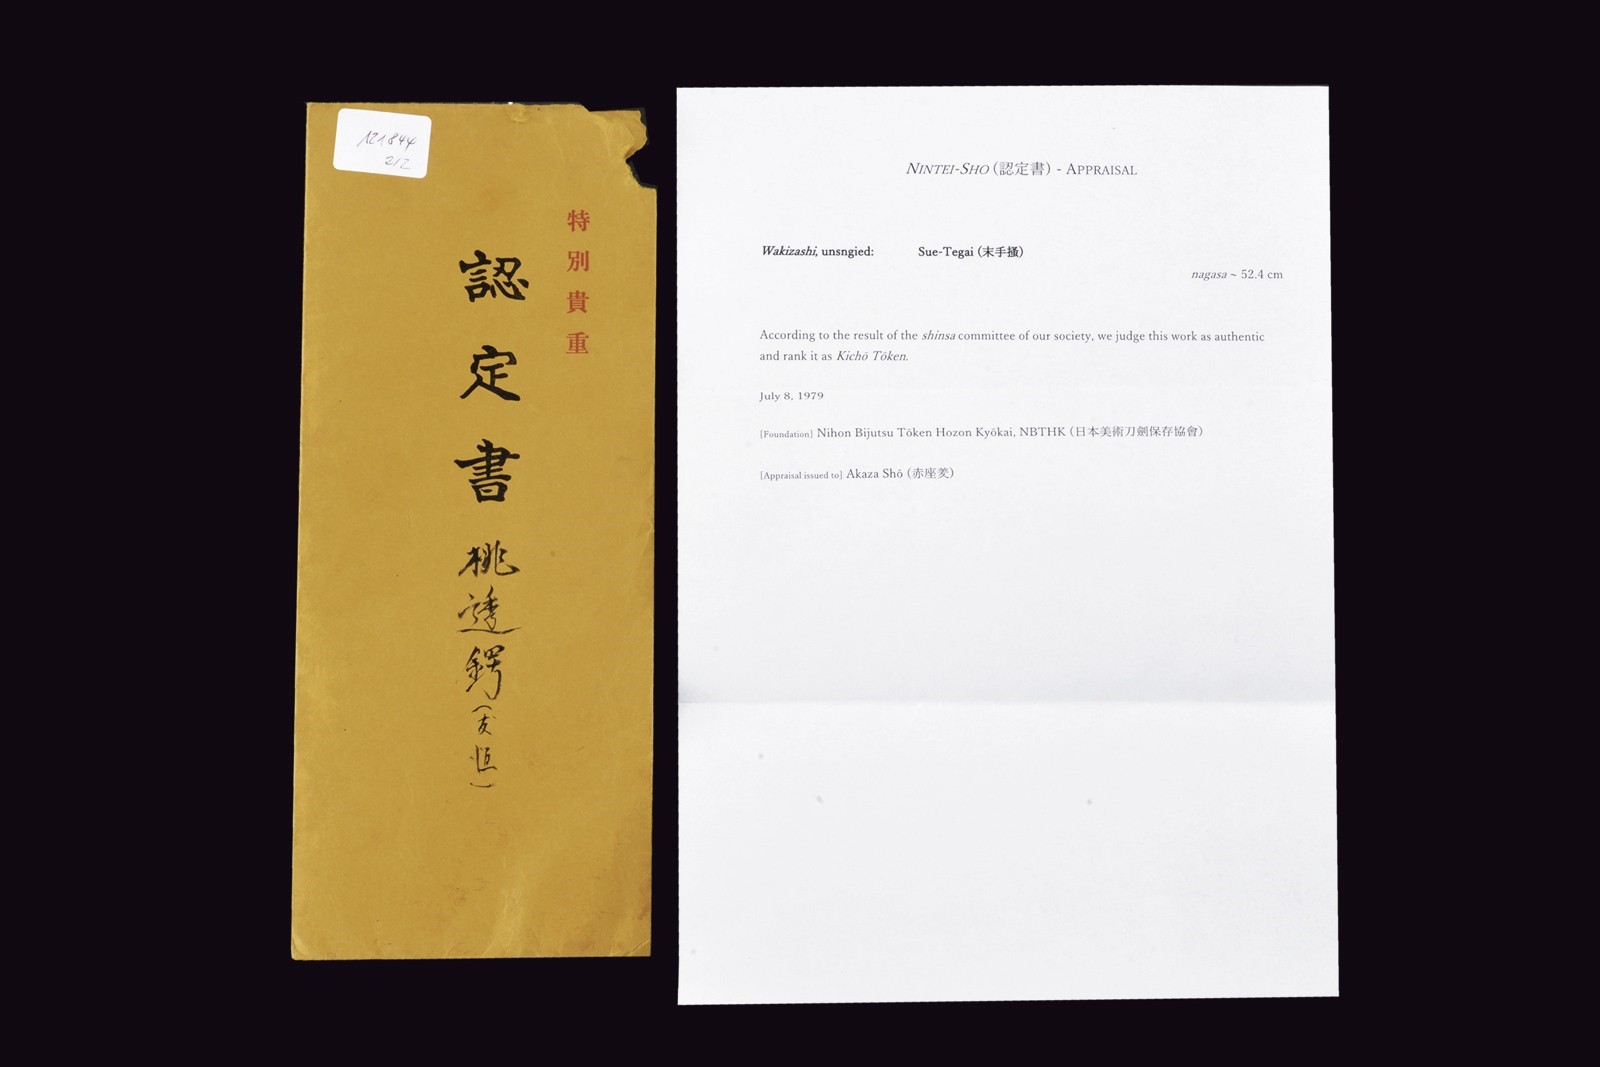 121844
2/2
特別貴重
認定書 桃透鍔(友恒)
NINTEI-SHO (認定書) - APPRAISAL
Wakizashi, unsngied: Sue-Tegai (末手掻)
nagasa ~ 52.4 cm
According to the result of the shinsa committee of our society, we judge this work as authentic
and rank it as Kichō Tōken.
July 8, 1979
[Foundation] Nihon Bijutsu Tōken Hozon Kyōkai, NBTHK (日本美術刀劍保存協會)
[Appraisal issued to] Akaza Shō (赤座羙)